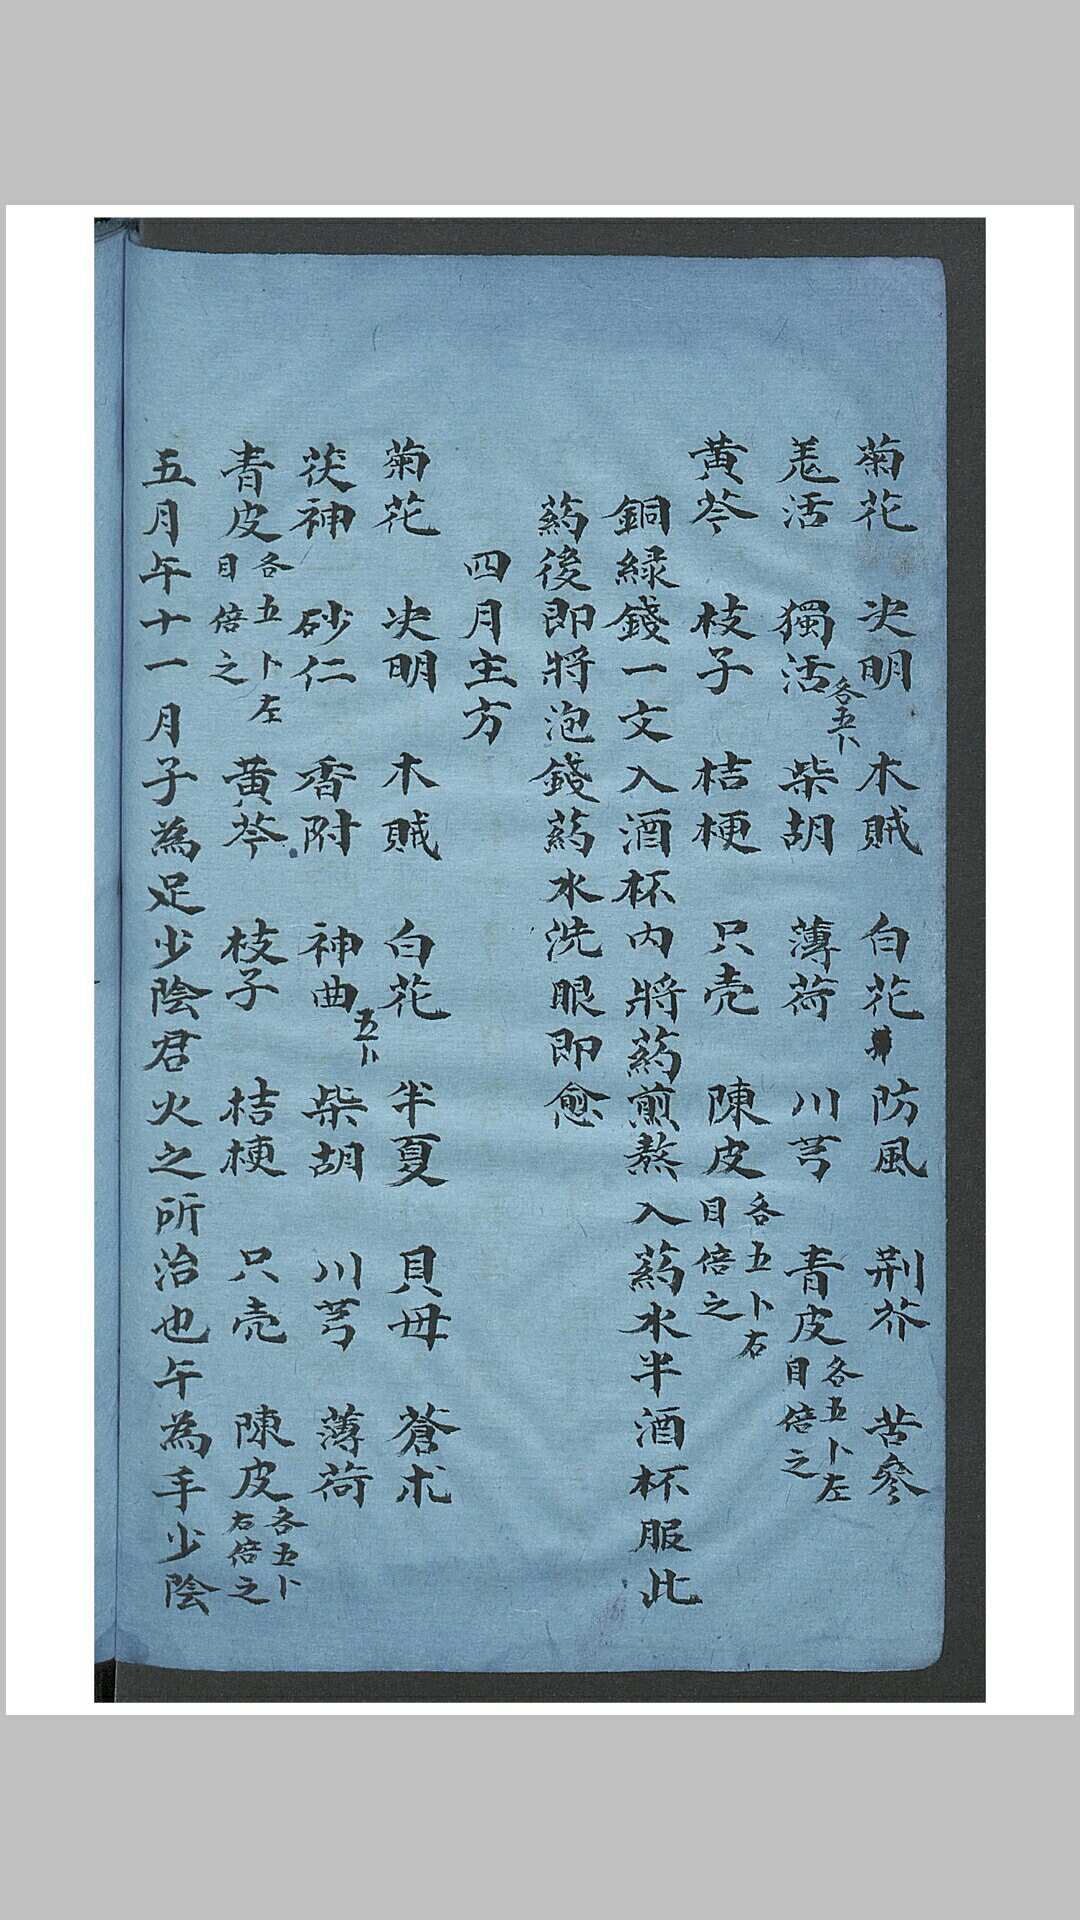 菊花 决明 木賊 白花 防風 荆芥 苦參
羗活 獨活各五卜 柴胡 薄荷 川芎 青皮各五卜左目倍之
黄芩 枝子 桔梗 只壳 陳皮各五卜右目倍之
銅緑錢一文入酒杯内將葯煎熬入葯水半酒杯服此
葯後即將泡錢葯水洗眼即愈
四月主方
菊花 决明 木賊 白花 半夏 貝母 蒼术
茯神 砂仁 香附 神曲五卜 柴胡 川芎 薄荷
青皮各五卜左目倍之 黄芩 枝子 桔梗 只壳 陳皮各五卜右倍之
五月午十一月子為足少陰君火之所治也午為手少陰